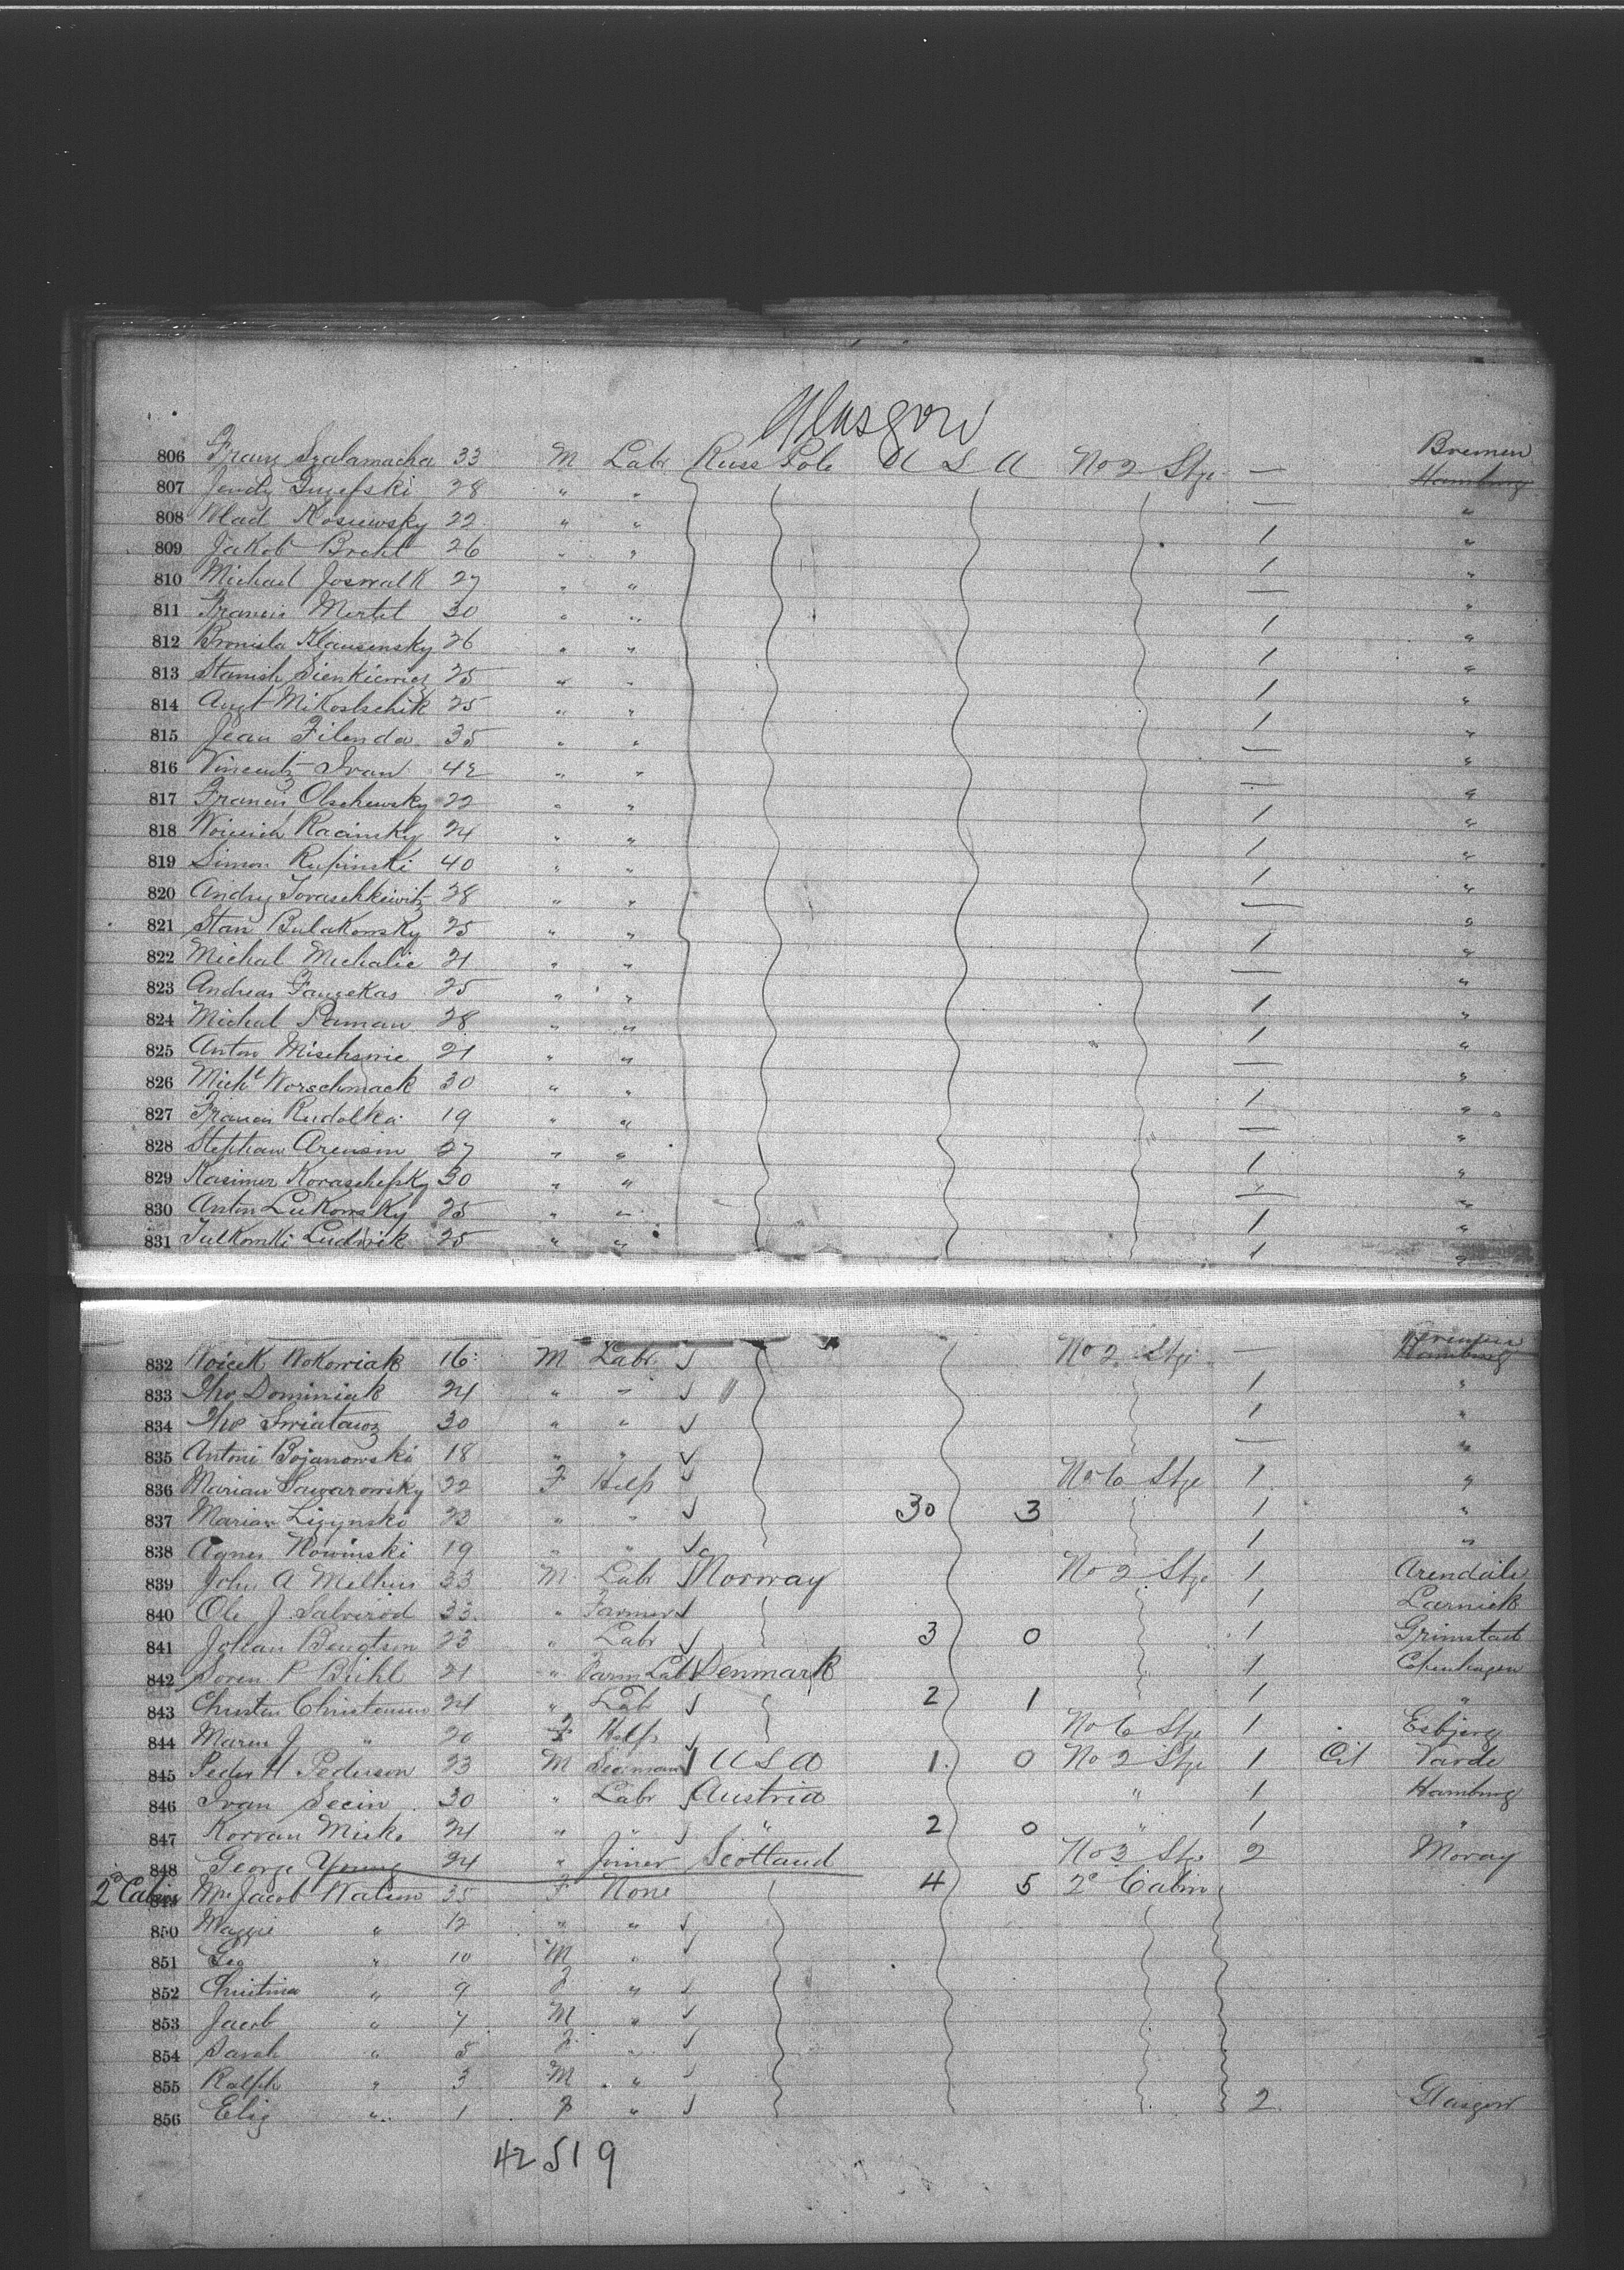 Glasgow
806 Franz Szalamacha 33 M Labr Russ Pole U S A No 2 Stge — Bremen
807 Jendz 28 " " — Hamburg
808 Wlad Kosuwsky 22 " " 1 "
809 Jakob Brohl 26 " " 1 "
810 Michael Joswalk 27 " " — "
811 Francis Mertel 30 " " 1 "
812 Bronisla Klausensky 26 " " 1 "
813 Stanish Sienkiewicz 25 " " 1 "
814 Augt Mikostschik 25 " " 1 "
815 Jean Filenda 35 " " — "
816 Vincentz Ivan 42 " " — "
817 Francis Olschewsky 22 " " 1 "
818 Racinsky 24 " " 1 "
819 Simon Rupinski 40 " " 1 "
820 Andry 28 " " — "
821 Stan Bulakowsky 25 " " 1 "
822 Michal Michalie 21 " " — "
823 Andreas 25 " " 1 "
824 Michal 28 " " 1 "
825 Anton 21 " " " — "
826 Michl Worschmack 30 " " 1 "
827 Francis Rudolka 19 " " — "
828 Stephan 27 " " 1 "
829 Kasimer Koraschefsky 30 " " — "
830 Anton Lukowsky 25 " " 1 "
831 Julkowski Ludwik 25 " " 1 "
832 Woicek Wokowiak 16 M Labr No 2 Stge — Bremen Hamburg
833 Tho Dominiak 24 " " 1 "
834 Tho 30 " " 1 "
835 Antoni Bojanowski 18 " " — "
836 Marian Sawarowsky 22 F Help No 6 Stge 1 "
837 Marian Ligynski 23 " " 30 3 1 "
838 Agnes Nowinski 19 " " 1 "
839 John A Melhus 33 M Labr Norway No 2 Stge 1 Arendale
840 Ole J Salverod 33 " Farmer 1 Larnick
841 Johan Bengtson 23 " Labr 3 0 1 Grimstad
842 Soren P Buhl 21 " Farm Lab Denmark " 1 Copenhagen
843 Christen Christensen 24 " Lab 2 1 1 "
844 Maren J " 20 F Help No 6 Stge 1 Esbjerg
845 Peder H Pederson 23 M Seaman U S A 1 0 No 2 Stge 1 Cit Varde
846 Ivan Secin 30 " Labr Austria " 1 Hamburg
847 Korvan Misko 24 " " " 2 0 " 1 "
848 George Young 24 " Joiner Scotland No 3 Stge 2 Moray
2d Cabin 849 Mrs Jacob Watson 35 F None 4 5 2d Cabin
850 Maggie " 12 " "
851 Geo " 10 M "
852 Christina " 9 F "
853 Jacob " 7 M "
854 Sarah " 5 F "
855 Ralph " 3 M "
856 Eliz " 1 F " 2 Glasgow
42 519